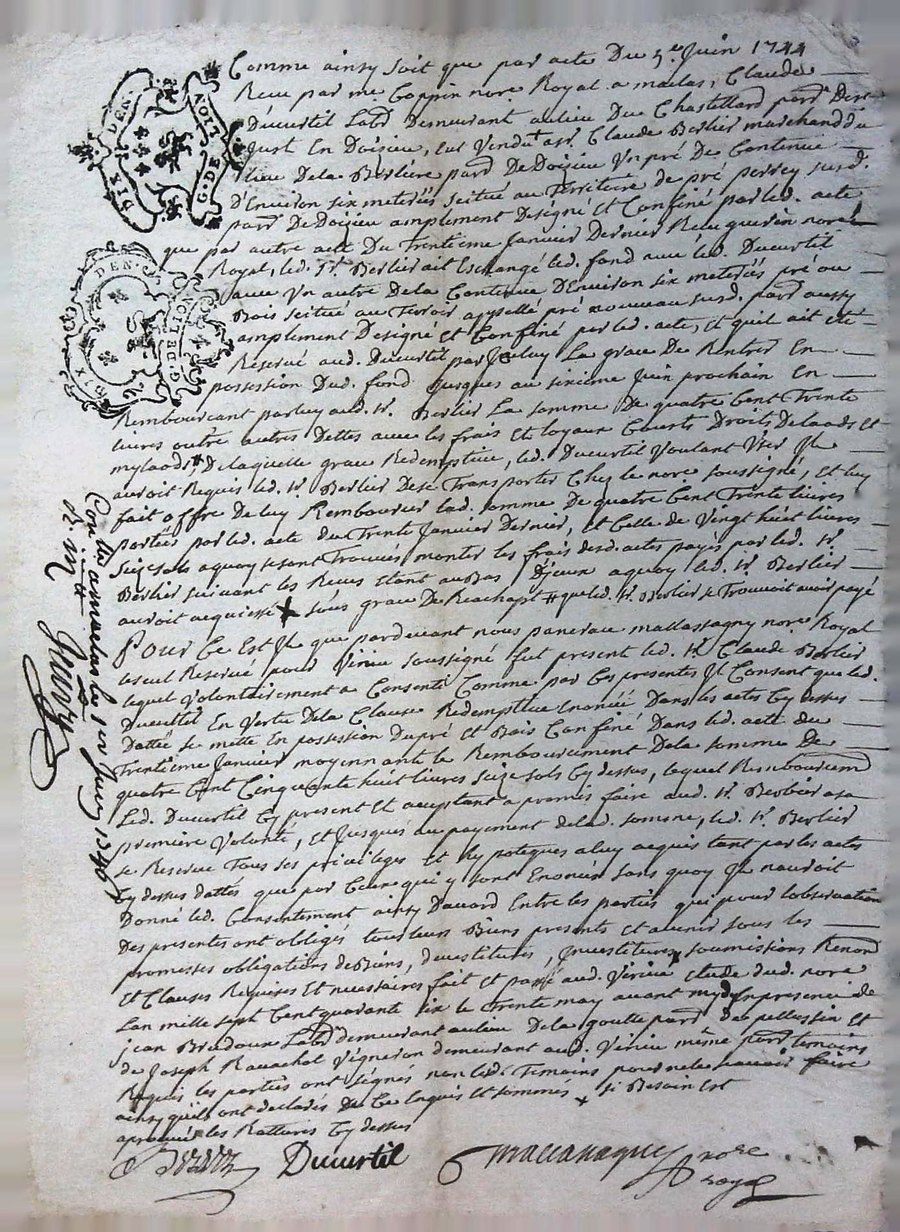 DIX DEN.
G. DE LION
DIX DEN.
G. DE LION
Comme ainsy soit que par acte Du 5e Juin 1744
Receu par me Coppin nore Royal a maclas, Claude
Ducurtil Labr Demeurant au lieu Du Chastellard parr De st
Just En Doisieu, eut Vendu a sr. Claude Berlier marchand du
lieu De la Berlière parr De Doizieu Un pré De Contenue
D'Environ six meterées scitué au Territoire de pré perrey surd.
parr De Doizieu amplement Désigné et Confiné par led. acte
que par autre acte Du Trentieme Janvier Dernier Receu guerin nore
Royal, led. sr. Berlier ait Eschangé led. fond avec led. Ducurtil
avec Un autre De la Contenue D'Environ six meterées pré ou
Bois scitué au Terroir appellé pré nouveau surd. parr aussy
amplement Designé et Confiné par led. acte, et quil ait eté
Reservé aud. Ducurtil par Jceluy La grace De Rentrer En
possession Dud. fond Jusques au sixieme Juin prochain En
Rembourcant par luy aud. sr. Berlier La somme De quatre Cent Trente
livres outre autres Dettes avec les frais et loyaux Couts Droits De laods et
mylaods De laquelle grace Redemptive, led. Ducurtil Voulant User Jl
auroit Requis led. sr. Berlier De se Transporter Chez le nore soussigné, et luy
fait offre De luy Rembourcer lad. somme De quatre Cent Trente livres
portée par led. acte du Trente Janvier Dernier, et Celle de Vingt huit livres
seize sols a quoy se sont Trouvés monter les frais desd. actes payés par led. sr.
Berlier suivant les Receus Etant au Bas D'jceux a quoy led. sr. Berlier
auroit acquiessé sous grace De Reachapt # que led. sr. Berlier se Trouvoit avoir payé
Pour Ce Est Jl que pardevant nous nore Royal
Reservé pour Virieu soussigné fut present led. sr. Claude Berlier
lequel Volontairement a Consenti Comme par Ces presentes Jl Consent que led.
Ducurtil En Vertu De la Clause Redemptive Enoncée Dans les actes Cy dessus
Dattée se mette En possession Du pré et Bois Confiné Dans led. acte du
Trentieme Janvier moyennant le Remboursement De la somme De
quatre Cent Cinquante huit livres seize sols Cy dessus, lequel Remboursem
Led. Ducurtil Cy present et acceptant a promis faire aud. sr. Berlier a sa
première Volonté, et Jusques au payement de lad. somme, led. sr. Berlier
se Reserve Tous ses privileges et hypoteques a luy acquis tant par les actes
Cy dessus dattés que par Ceux qui y sont Enoncés sans quoy Jl n'auroit
Donné led. Consentement ainsy D'accord Entre les parties qui pour l'observation
Des presentes ont obligés tous leurs Biens presents et avenir sous les
promesses obligations de Biens, devestitures, Jnvestitures, soumissions Renon
et Clauses Requises et necessaires fait et passé aud. Virieu etude dud. nore
Lan mille sept Cent quarante six le Trente may avant mydy En presence de
jean Labr demeurant au lieu De la goutte parr de pellussin et
de Joseph Ravachol Vigneron demeurant aud. Virieu même parr temoins
Requis les parties ont signés non led. Temoins pour ne le scavoir faire
ainsy quils ont declarés De Ce Enquis et sommés si Besoin est
aprouvé les Rattures Cy dessus
Ducurtil
nore
royal
Conlle a maclas le 1er Juin 1746